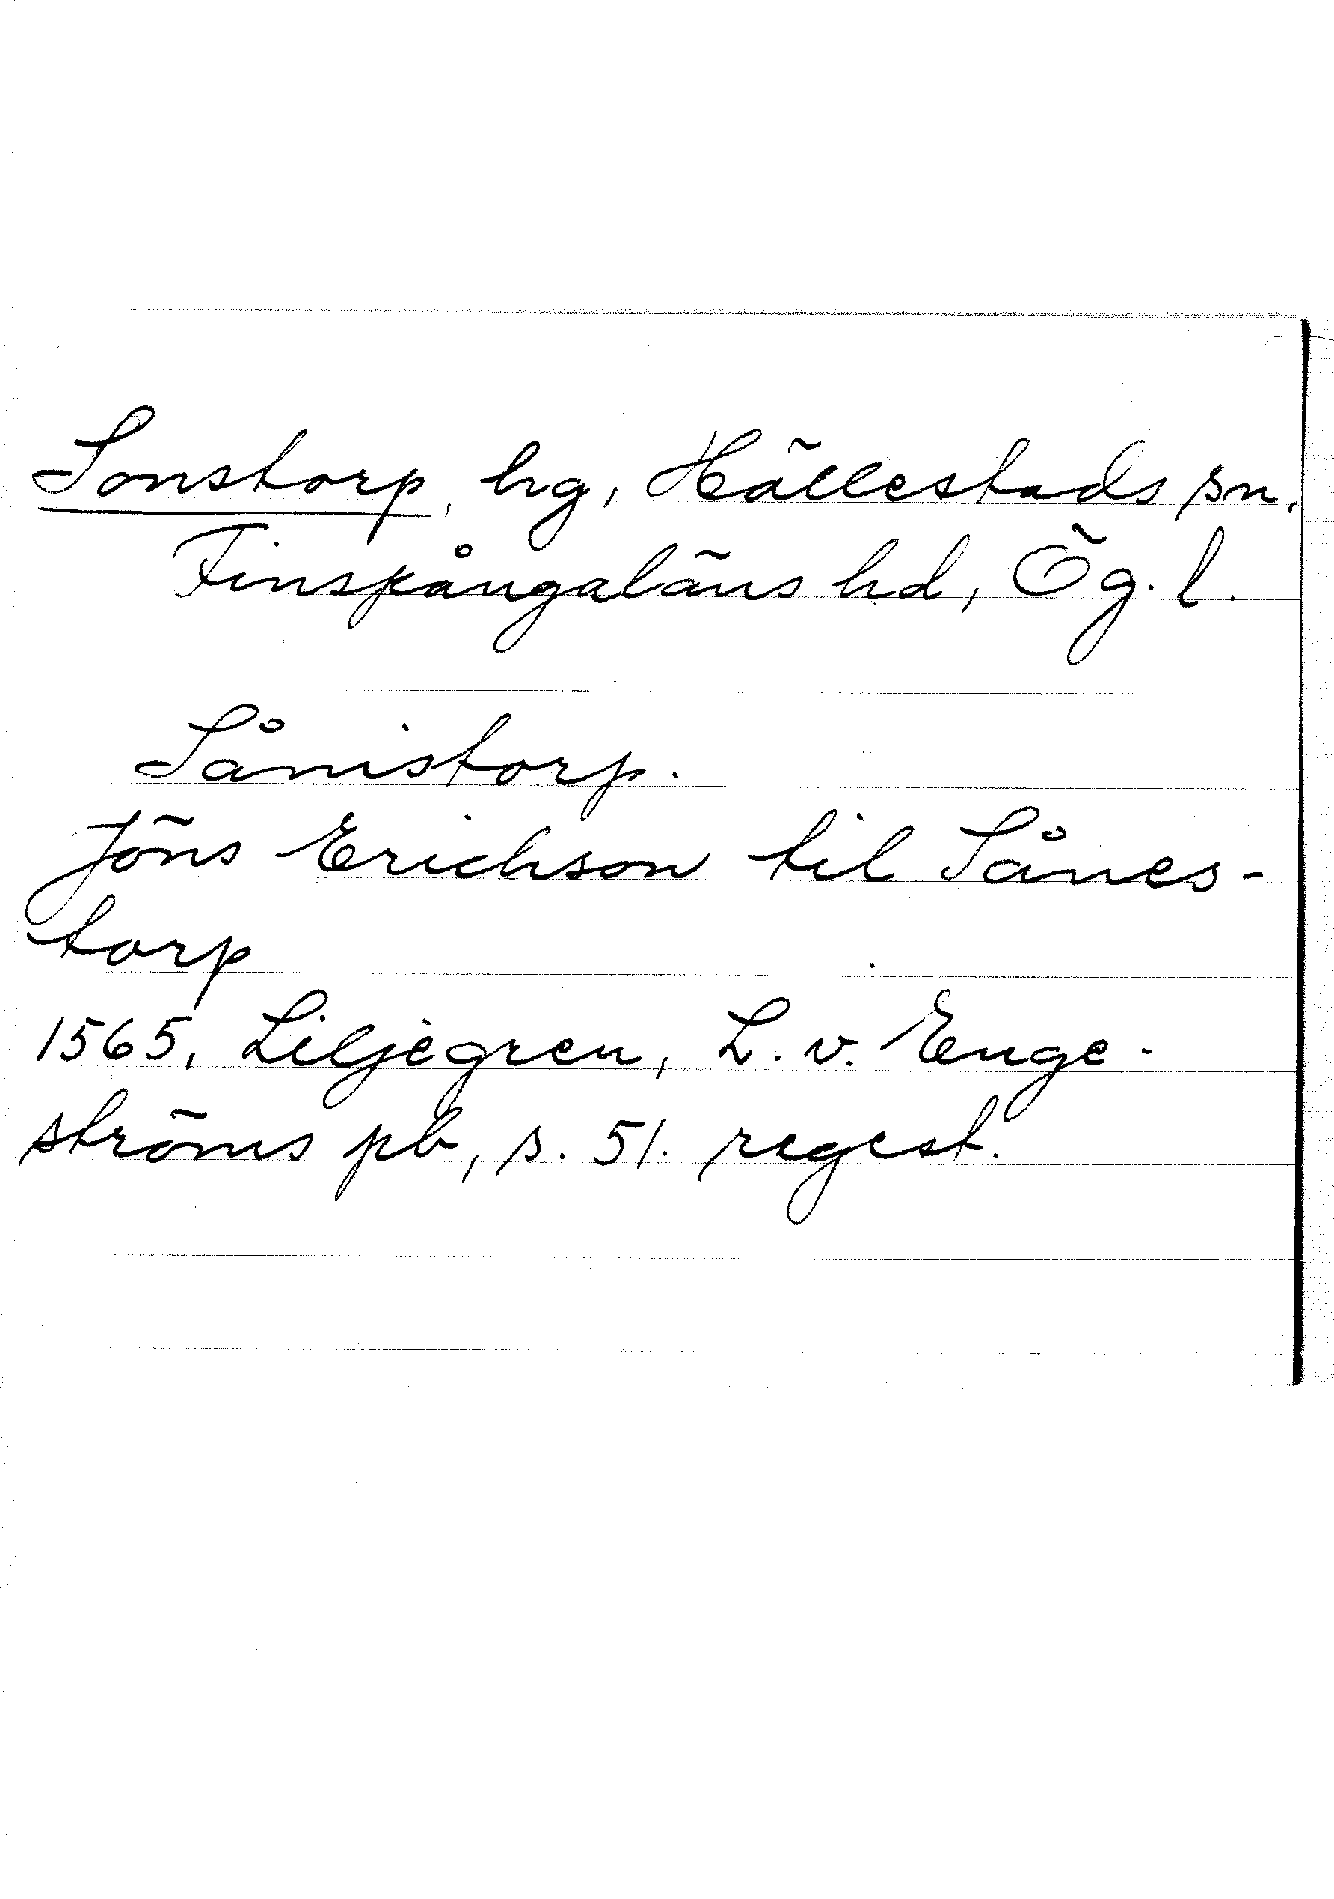 Sonstorp, hg, Hällestads sn,
Finspångaläns hd, Ög. l.
Sånistorp.
Jöns Erichson til Sånes-
torp
1565, Liljegren, L. v. Enge-
ströms pb, s. 51. regest.